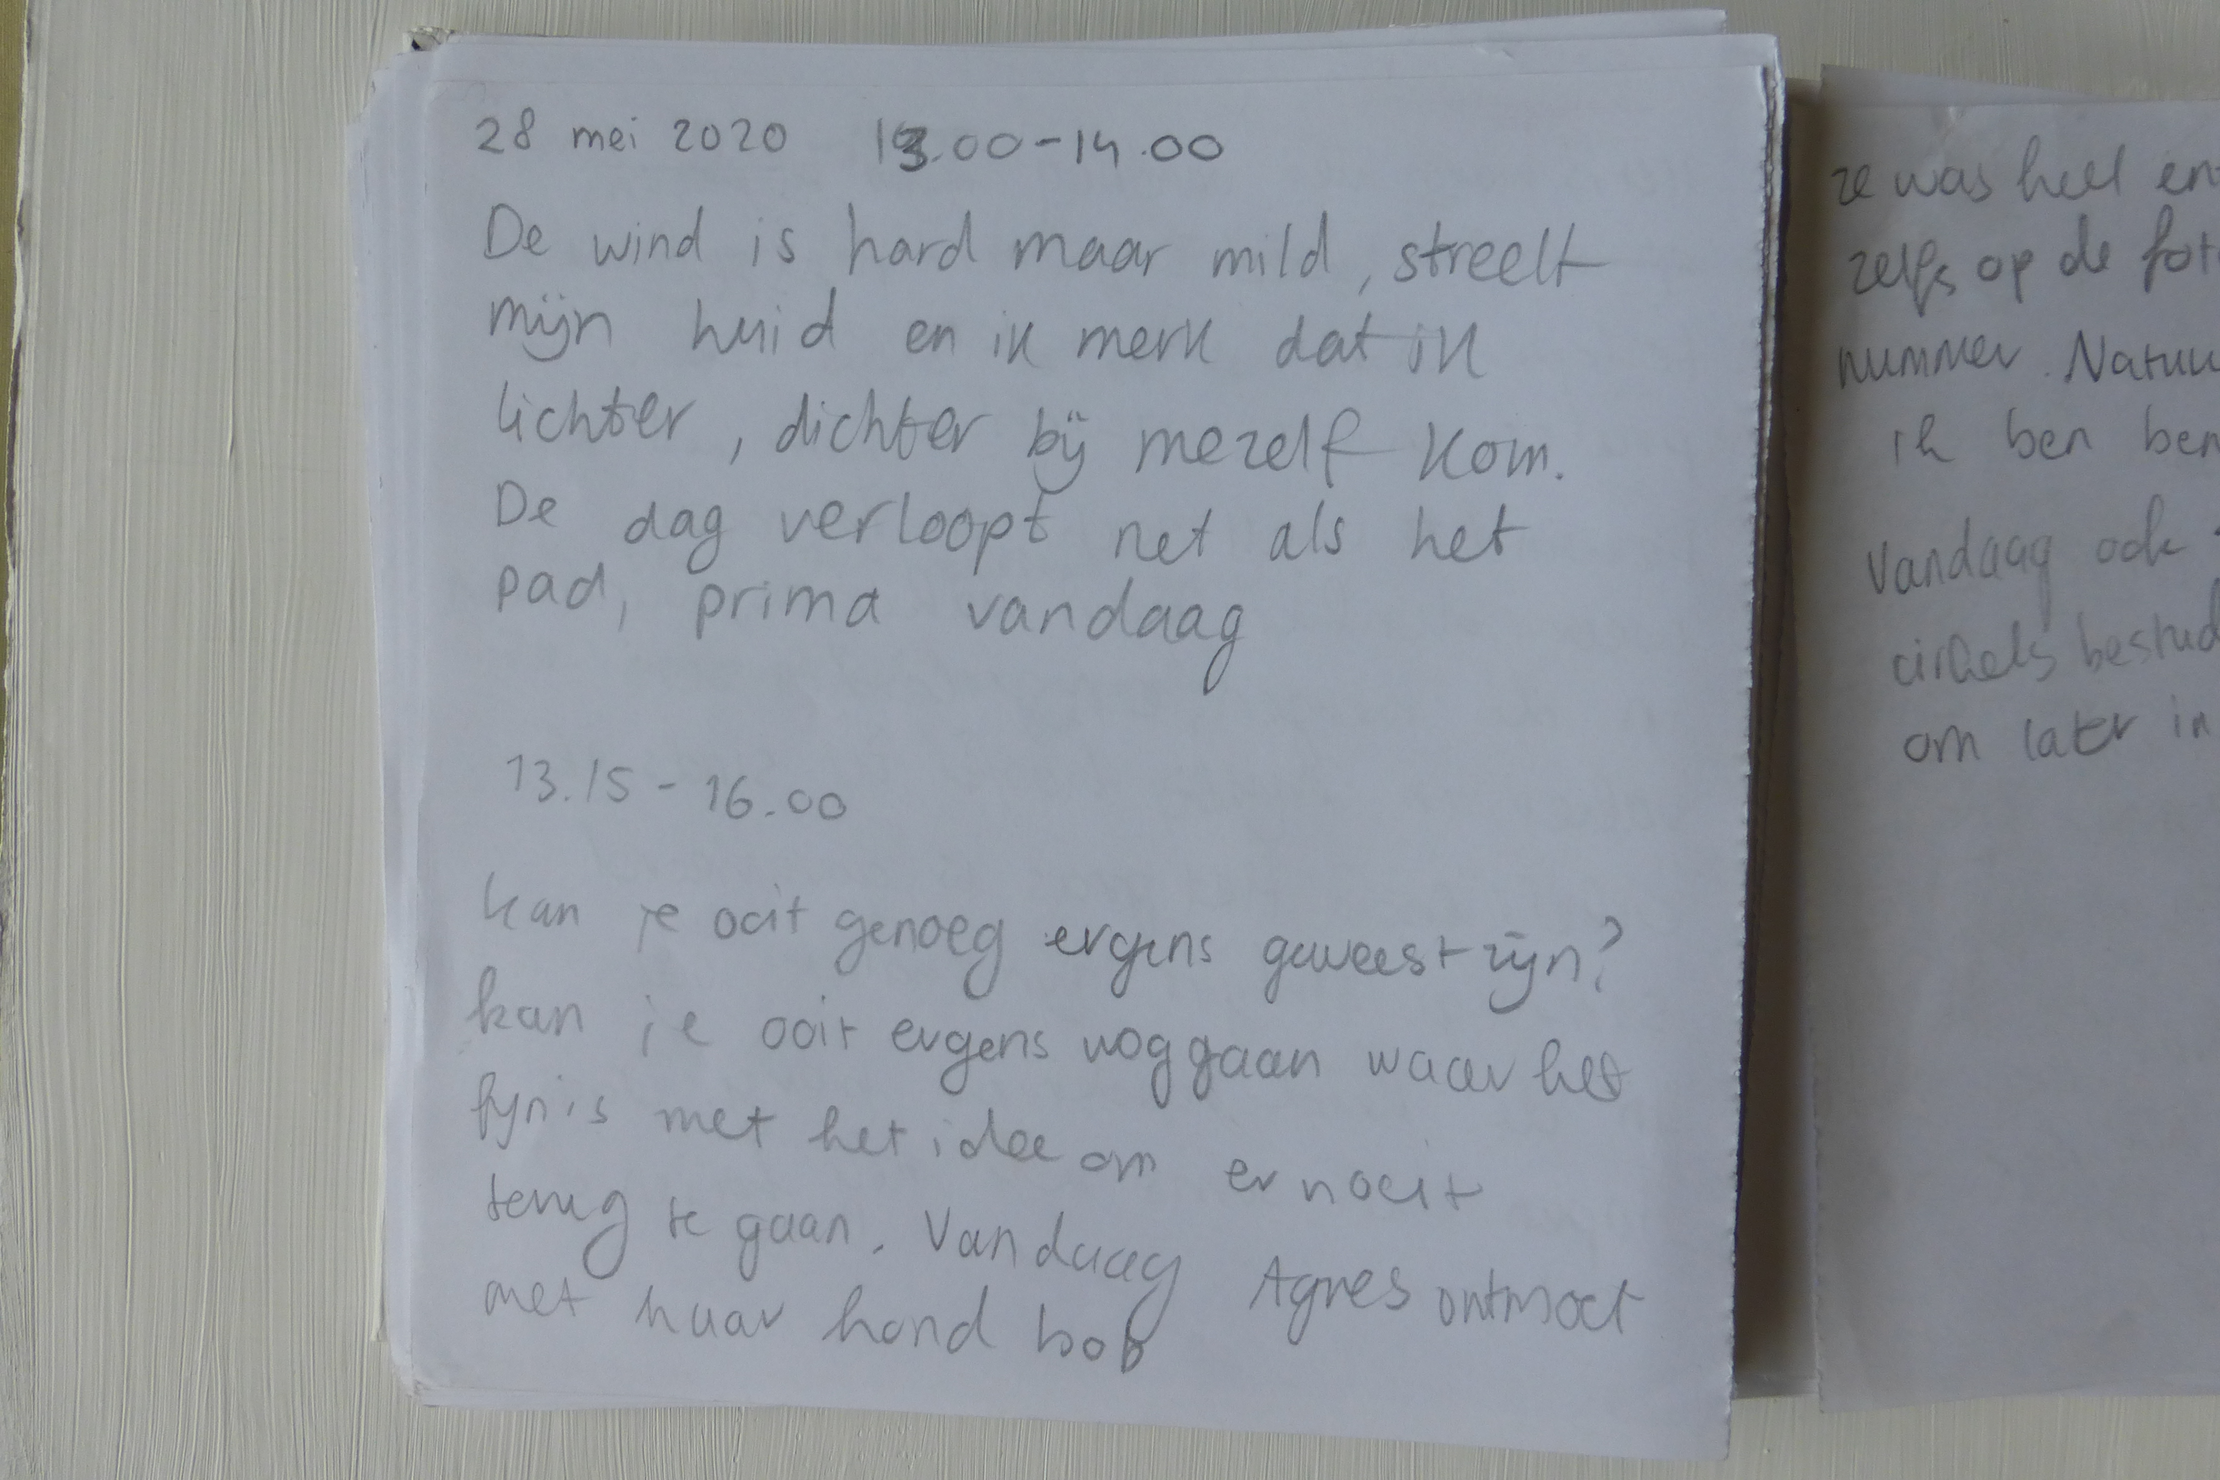 28 mei 2020 13.00-14.00
De wind is hard maar mild, streelt
mijn huid en ik merk dat ik
lichter, dichter bij mezelf kom.
De dag verloopt net als het
pad, prima vandaag
13.15 - 16.00
kan je ooit genoeg ergens geweest zijn?
kan je ooit ergens weggaan waar het
fijn is met het idee om er nooit
terug te gaan. Vandaag Agnes ontmoet
met haar hond bob
ze was heel
zelfs op de
nummer.
ik ben
vandaag ook
cirkels
om later in